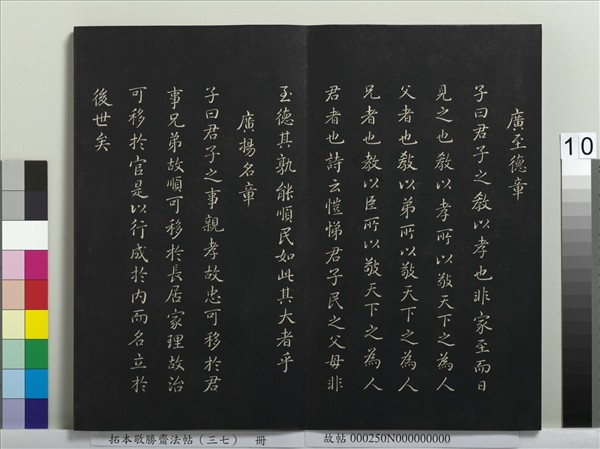 廣至德章
子曰君子之教以孝也非家至而日
見之也教以孝所以敬天下之為人
父者也教以弟所以敬天下之為人
兄者也教以臣所以敬天下之為人
君者也詩云愷悌君子民之父母非
至德其孰能順民如此其大者乎
廣揚名章
子曰君子之事親孝故忠可移於君
事兄弟故順可移於長居家理故治
可移於官是以行成於內而名立於
後世矣
10
拓本敬勝齋法帖(三七) 冊
故帖 000250N000000000